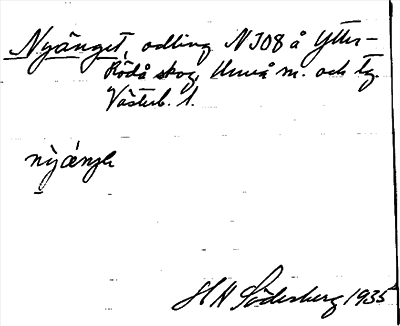 Nyänget, odling N 308 å Ytter-
Rödå skog, Umeå m. och tg.
Västerb. l.
nyängɛ
H Söderberg 1935